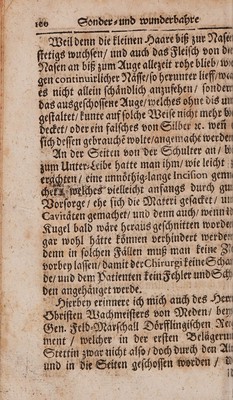 100 Sonder- und wunderbahre
Weil denn die kleinen Haare biß zur Nasen
stetigs wuchsen/ und auch das Fleisch von der
Nasen an biß zum Auge allezeit rohe blieb/ we-
gen continuirlicher Nässe/ so herunter lieff/ wa
es nicht allein schändlich anzusehen/ sondern
das ausgeschossene Auge/ welches ohne dis un
gestaltet/ kunte auf solche Weise nicht mehr be
decket/ oder ein falsches von Silber ꝛc. weß
sich dessen gebrauchē wolte/ angemacht werden
An der Seiten von der Schulter an/ bi
zum Unter-Leibe hatte man ihm/ wie leicht z
erachten/ eine unnöthig-lange Incision gema
chet/ welches vielleicht anfangs durch gut
Vorsorge/ ehe sich die Materi gesacket/ un
Cavitäten gemachet/ und denn auch/ wenn d
Kugel bald wäre heraus geschnitten worden
gar wohl hätte können verhindert werden
denn in solchen Fällen muß man keine Ze
vorbey lassen/ damit der Chirurgi kein Schan
de/ und dem Patienten kein Fehler und Sch
den angehänget werde.
Hierbey erinnere ich mich auch des Herr
Obristen Wachmeisters von Meden/ beym
Gen. Feld-Marschall Dörfflingischen Re
ment/ welcher in der ersten Belägerun
Stettin zwar nicht also/ doch durch den A
und in die Seiten geschossen worden/